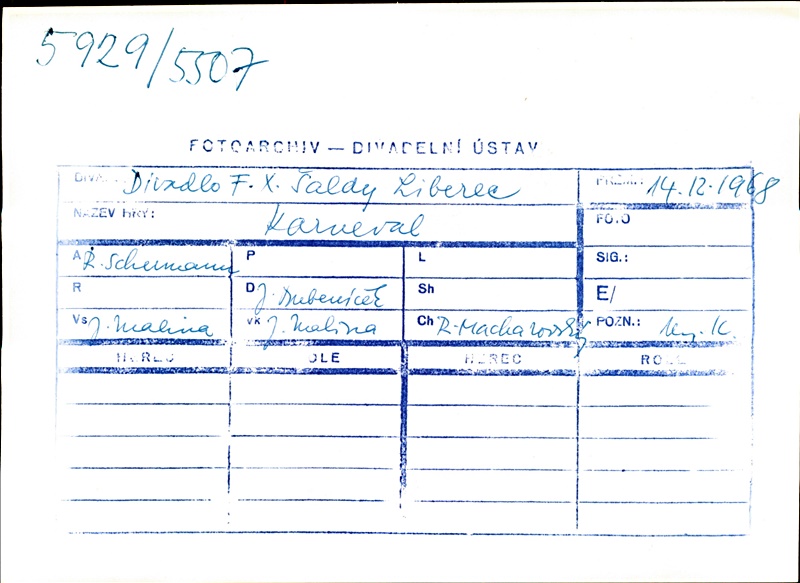 5929/5507
FOTOARCHIV — DIVADELNÍ ÚSTAV
DIVA. Divadlo F. X. Šaldy Liberec PREM.: 14.12.1968
NÁZEV HRY: Karneval FOTO
A R. Schumann P L SIG.:
R D J. Dubeníček Sh E/
Vs J. Malina Vk J. Malina Ch R. Macharovský POZN.:
HEREC ROLE HEREC ROLE